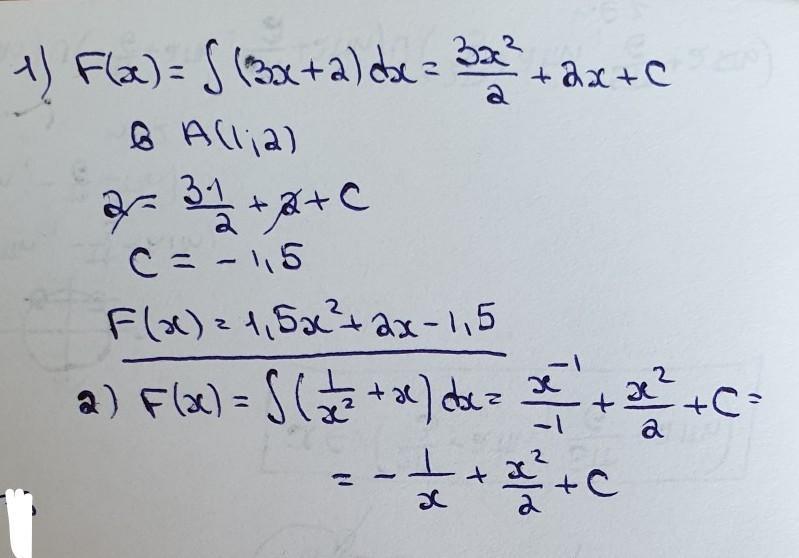 1) F(x) = ∫ (3x+2) dx = 3x²/2 + 2x + C
В A(1;2)
2 = 3·1/2 + 2 + C
C = -1,5
F(x) = 1,5x² + 2x - 1,5
2) F(x) = ∫ (1/x² + x) dx = x⁻¹/-1 + x²/2 + C =
= - 1/x + x²/2 + C